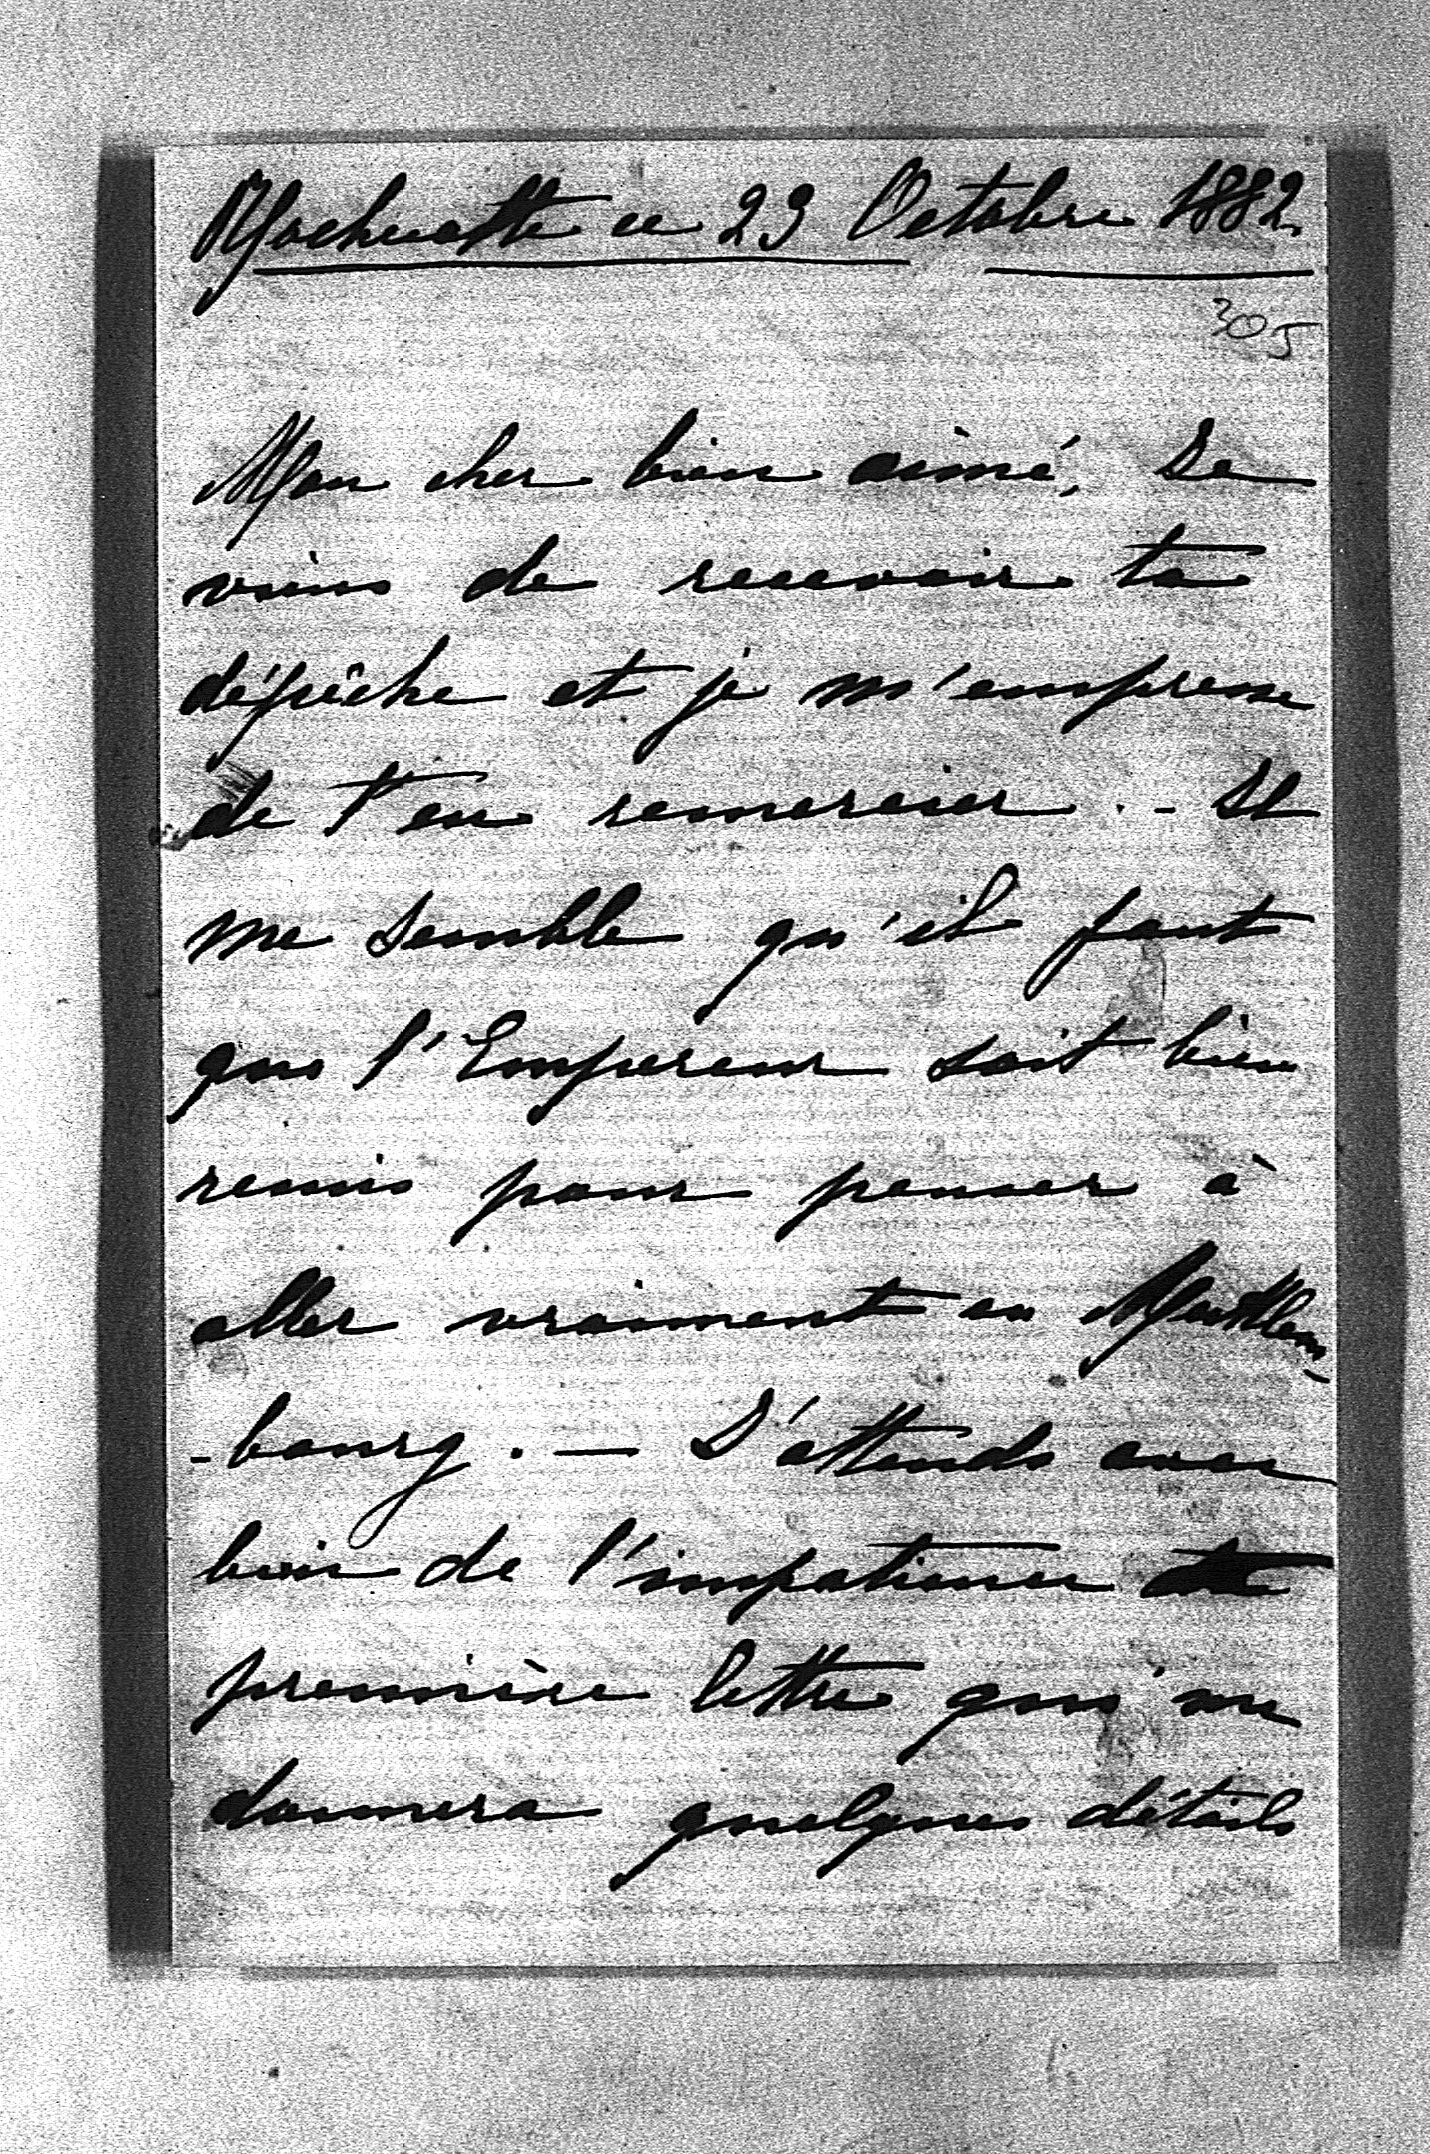 Mochuatte ce 23 Octobre 1882.
305
Mon cher bien aimé, Je
viens de recevoir ta
dépêche et je m'empresse
de t'en remercier. - Il
me semble qu'il faut
que l'Empereur soit bien
remis pour penser à
aller vraiment en Mecklem-
-bourg. — J'attends avec
bien de l'impatience ta
première lettre qui me
donnera quelques détails